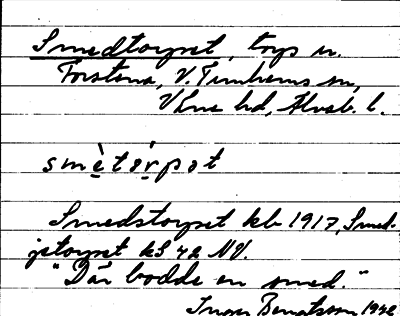 Smedtorpet, torp u.
Forstena, V. Tunhems sn,
Väne hd, Älvsb. l.
smètórpət
Smedstorpet kb 1917, Smed-
jetorpet kS 42 NV.
"Där bodde en smed."
Bengtsson 1942